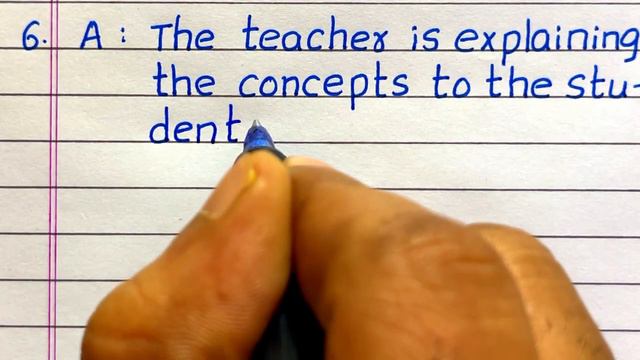 6. A : The teacher is explaining
the concepts to the stu-
dent